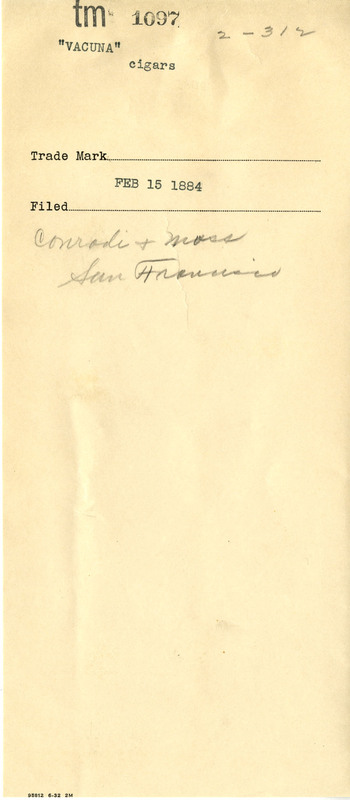 tm 1097
2-312
"VACUNA"
cigars
Trade Mark
FEB 15 1884
Filed
Conradi & Moss
San Francisco
98912 6-32 2M